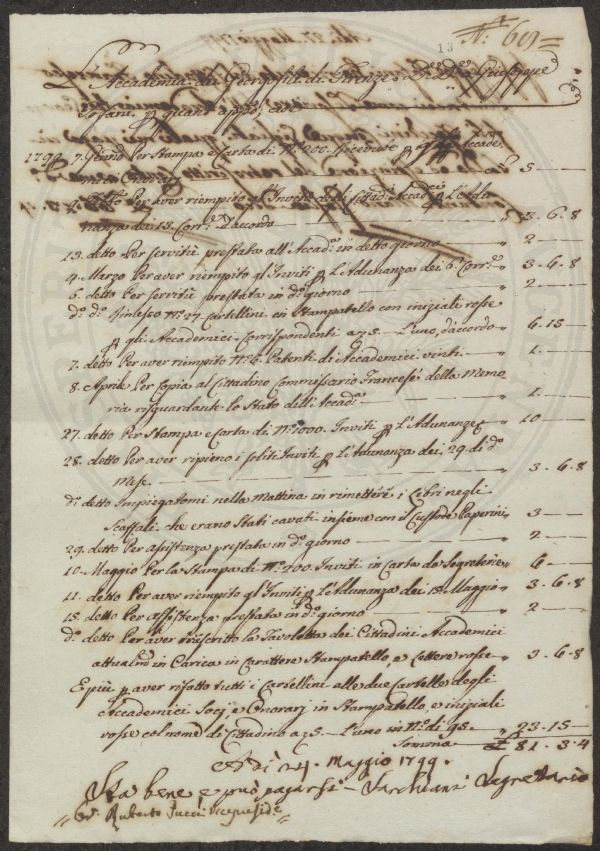 13 N.° 609=
L'Accademia dei Georgofili di Firenze
1799. 7. Genn.° Per Stampa e Carta di N.° 200. Ricevute p gl' Accade
mici Onorarj 3 —
9. detto Per aver riempito gl'Inviti degli Cittad.i Accad.ci p L'Adu
nanza dei 13. Corr.e D'accordo 3. 6. 8
13. detto Per servitù prestata all'Accad.a in detto giorno „ 2 —
4. Marzo Per aver riempito gl'Inviti p L'Adunanza dei 6. Corr.e „ 3. 6. 8
6. detto Per servitù prestata in d.° giorno „ 2 —
D.° d.° Rimesso N.° 27. Cartellini in Stampatello con iniziali rosse
p gli Accademici Corrispondenti a 5 — L'uno, d'accordo „ 6. 15 —
7. detto Per aver riempito N.° 6. Patenti di Accademici „ 1. —
8. Aprile Per Copia al Cittadino Commissario Francese della Memo
ria risguardante lo Stato dell'Accad.a „ 1. —
27. detto Per Stampa e Carta di N.° 1000. Inviti p L'Adunanze „ 10 —
28. detto Per aver ripieno i soliti Inviti p L'Adunanza dei 29. di d.°
Mese „ 3. 6. 8
D.° detto Impiegatomi nella Mattina in rimettere i Libri negli
Scaffali che erano Stati cavati insieme con il Custode Paperini „ 3 —
29. detto Per assistenza prestata in d.° giorno „ 2 —
10. Maggio Per la Stampa di N.° 100. Inviti in Carta da Segreterie „ 6 —
11. detto Per aver riempito gl'Inviti p L'Adunanza dei 15. Maggio „ 3. 6. 8
15. detto Per Assistenza prestata in d.° giorno „ 2 —
D.° detto Per aver trascritto la Tavoletta dei Cittadini Accademici
attualm.e in Carica in Carattere Stampatello, e Lettere rosse „ 3. 6. 8
E più p aver rifatto tutti i Cartellini alle due Cartelle degli
Accademici Socj, e Onorarj in Stampatello, e iniziali
rosse col nome di Cittadino a 5 — L'uno in N.° di 95. „ 23. 15 —
Somma £ 81. 3. 4
A dì 24. Maggio 1799.
Sta bene e può pagarsi — Sarchiani Segretario
Roberto Pucci Vicepreside